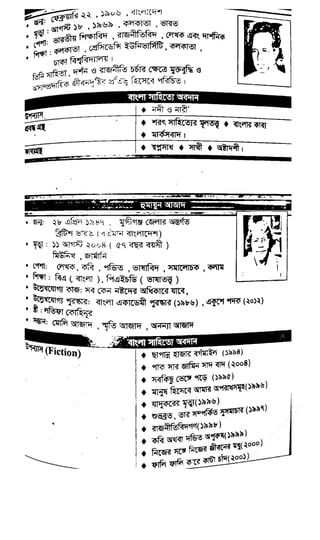 জন্ম: ফেব্রুয়ারি ২২, ১৯০৬, বাংলাদেশ
মৃত্যু: আগস্ট ১৮, ১৯৬৯, কলকাতা, ভারত
পেশা: ভারতীয় শিক্ষাবিদ, রাজনীতিবিদ, লেখক এবং দার্শনিক
শিক্ষা: কলকাতা, প্রেসিডেন্সি ইউনিভার্সিটি, কলকাতা,
ঢাকা বিশ্ববিদ্যালয়।
তিনি সাহিত্য, দর্শন ও রাজনীতি চর্চার ক্ষেত্রে মুক্তবুদ্ধি ও
অসাম্প্রদায়িক জীবনদৃষ্টির প্রতিভূ হিসেবে পরিচিত।
বাংলা সাহিত্যে অবদান
উপন্যাস ♦ নদী ও নারী
প্রবন্ধ গ্রন্থ ♦ শরৎ সাহিত্যের মূলতত্ত্ব ♦ বাংলার কাব্য
♦ মার্কসবাদ।
কাব্যগ্রন্থ ♦ স্বপ্নসাধ ♦ সাথী ♦ অষ্টাদশী।
হুমায়ুন আজাদ
জন্ম: ২৮ এপ্রিল ১৯৪৭, মুন্সীগঞ্জ জেলার অন্তর্গত
ব্রিটিশ ভারত (বর্তমান বাংলাদেশ)
মৃত্যু: ১১ আগস্ট ২০০৪ (৫৭ বছর বয়সী)
মিউনিখ, জার্মানি
পেশা: লেখক, কবি, পন্ডিত, ভাষাবিদ, সমালোচক, কলাম
শিক্ষা: বিএ (বাংলা), পিএইচডি (ভাষাতত্ত্ব)
উল্লেখযোগ্য কাজ: সব কিছু নষ্টদের অধিকারে যাবে,
উল্লেখযোগ্য পুরস্কার: বাংলা একাডেমী পুরস্কার (১৯৮৬), একুশে পদক (২০১২)
স্ত্রী: লতিফা কোহিনুর
সন্তান: মৌলি আজাদ, স্মৃতি আজাদ, অনন্য আজাদ
বাংলা সাহিত্যে অবদান
উপন্যাস (Fiction) ♦ ছাপ্পান্ন হাজার বর্গমাইল (১৯৯৪)
♦ পাক সার জমিন সাদ বাদ (২০০৪)
♦ সবকিছু ভেঙ্গে পড়ে (১৯৯৫)
♦ মানুষ হিসেবে আমার অপরাধসমূহ(১৯৯৬)
♦ যাদুকরের মৃত্যু(১৯৯৬)
♦ শুভব্রত, তার সম্পর্কিত সুসমাচার (১৯৯৭)
♦ রাজনীতিবিদগণ(১৯৯৮)
♦ কবি অথবা দন্ডিত অপুরুষ(১৯৯৯)
♦ নিজের সঙ্গে নিজের জীবনের মধু(২০০০)
♦ ফালি ফালি ক'রে কাটা চাঁদ(২০০১)